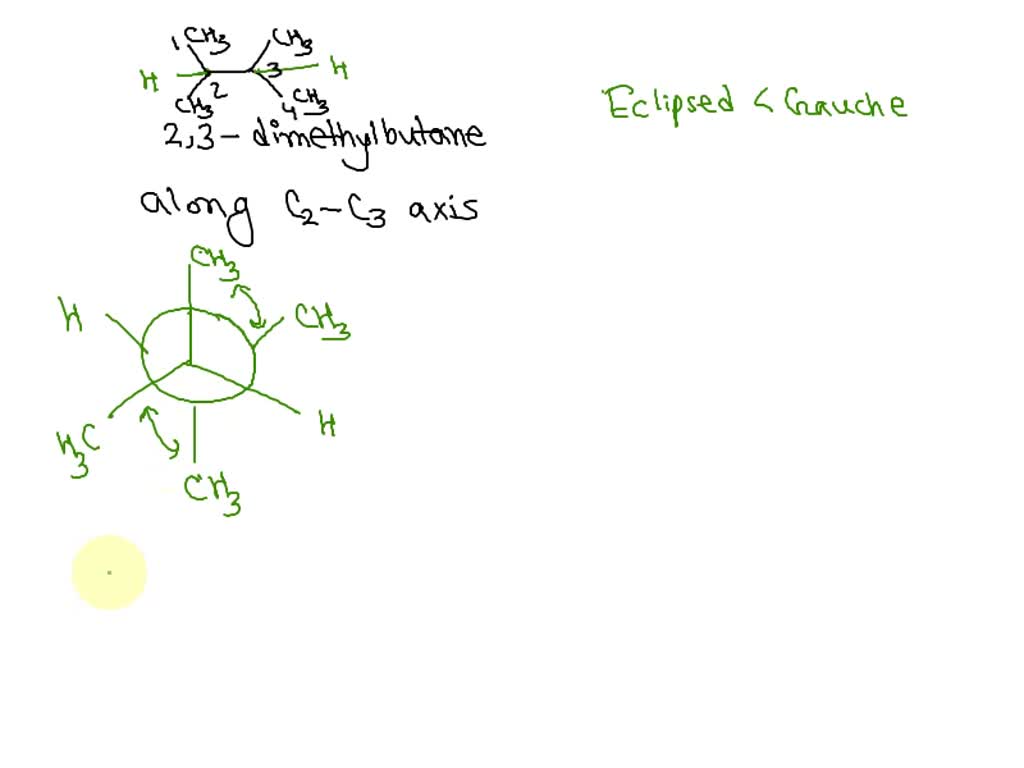 1 CH3 CH3
H 3 H
CH3 2 4 CH3
2,3-dimethylbutane
Eclipsed < Gauche
along C2-C3 axis
CH3
H CH3
H3C H
CH3